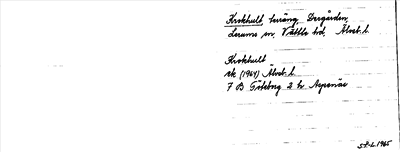 Krokhult, terräng, Dregården,
Lerums sn, Vättle hd, Älvsb. l.
Krokhult
ek (1964) Älvsb. l.
7 B Göteborg 2 h Aspenäs
S.F-L. 1965